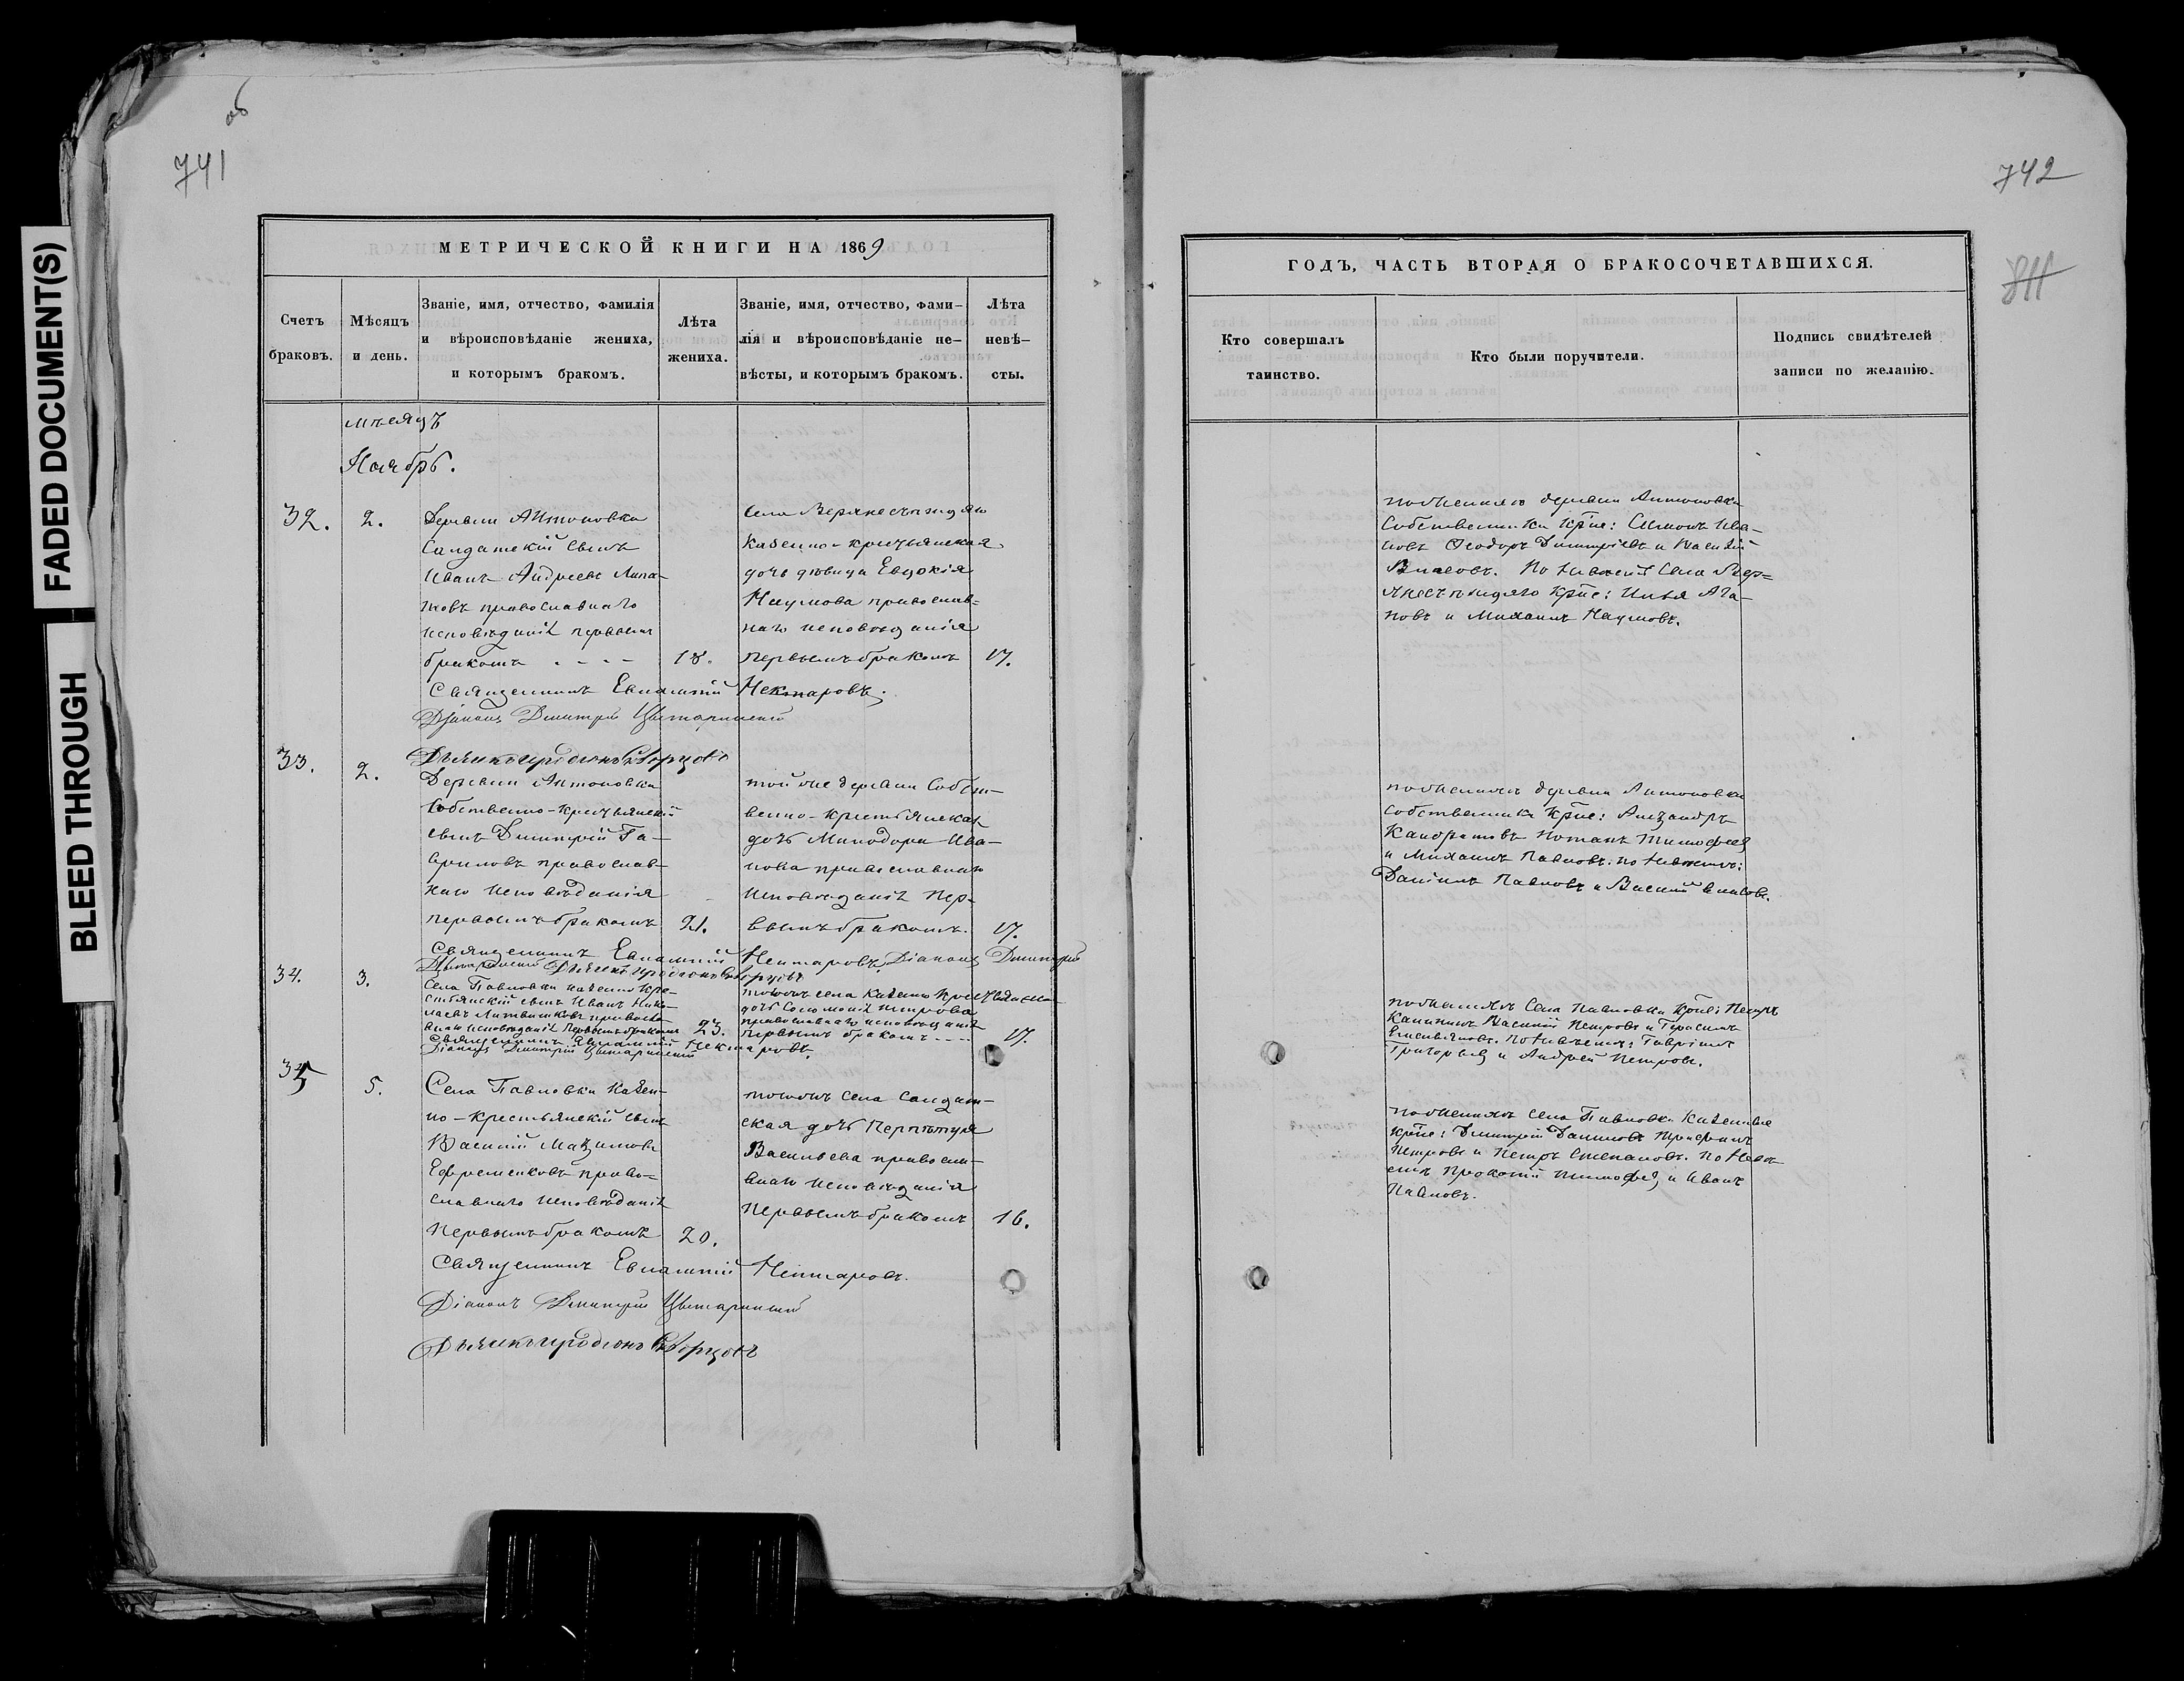 FADED DOCUMENT(S)
BLEED THROUGH
об
741
МЕТРИЧЕСКОЙ КНИГИ НА 1869
Счетъ
браковъ.
Мѣсяцъ
и день.
Званіе, имя, отчество, фамилія
и вѣроисповѣданіе жениха,
и которымъ бракомъ.
Лѣта
жениха.
Званіе, имя, отчество, фами-
лія и вѣроисповѣданіе не-
вѣсты, и которымъ бракомъ.
Лѣта
невѣ-
сты.
мѣсяцъ
Ноябрь.
32.
2.
Деревни Антоновки
Салдатскій сынъ
Иванъ Андреевъ
православнаго
исповѣданія первымъ
бракомъ
18.
Села
Казенно-крестьянская
дочь дѣвица Евдокія
Наумова православ-
наго исповѣданія
первымъ бракомъ
17.
Священникъ Евлампій Нектаровъ.
Діаконъ Димитрій
Дьячекъ Иродіонъ Скворцовъ
33.
2.
Деревни Антоновки
Собственно-крестьянскій
сынъ Димитрій Га-
вриловъ православ-
наго исповѣданія
первымъ бракомъ
21.
той же деревни Собст-
венно-крестьянская
дочь Минодора Ива-
нова православнаго
исповѣданія пер-
вымъ бракомъ.
17.
Священникъ Евлампій Нектаровъ Діаконъ Димитрій
Дьячекъ Иродіонъ Скворцовъ
34.
3.
Села Павловки казенно кре-
стьянскій сынъ Иванъ Нико-
лаевъ Литвинковъ правосла-
внаго исповѣданія первымъ бракомъ
23.
тогожъ села казенно крестьянская
дочь Соломонія Петрова
православнаго исповѣданія
первымъ бракомъ
17.
Священникъ Евлампій Нектаровъ.
Діаконъ Димитрій
35
5.
Села Павловки казен-
но-крестьянскій сынъ
Василій Маѯимовъ
Ефременковъ право-
славнаго исповѣданія
первымъ бракомъ
20.
тогожъ села салдат-
ская дочь Перпетуя
Васильева правосла-
внаго исповѣданія
первымъ бракомъ
16.
Священникъ Евлампій Нектаровъ.
Діаконъ Димитрій
Дьячекъ Иродіонъ Скворцовъ
742
811
ГОДЪ, ЧАСТЬ ВТОРАЯ О БРАКОСОЧЕТАВШИХСЯ.
Кто совершалъ
таинство.
Кто были поручители.
Подпись свидѣтелей
записи по желанію.
по женихѣ деревни Антоновки
Собственники кр̃не: Симонъ Ива-
новъ Ѳеодоръ Димитріевъ и Василій
Власовъ. По невѣстѣ села
кр̃не: Илья Ага-
повъ и Михаилъ Наумовъ.
по женихѣ деревни Антоновки
собственники кр̃не: Алеѯандръ
Кандратовъ Потапъ Тимофеевъ
и Михаилъ Павловъ. по невѣстѣ:
Даніилъ Павловъ и Василій Власовъ.
по женихѣ Села Павловки кр̃не: Петръ
Калининъ Василій Петровъ и Герасимъ
Емельяновъ. По невѣстѣ: Гавріилъ
Григорьевъ и Андрей Петровъ.
по женихѣ села Павловки казенные
кр̃не: Димитрій Даниловъ Трифонъ
Петровъ и Петръ Степановъ. по невѣ-
стѣ Прокопій Тимофеевъ и Иванъ
Павловъ.